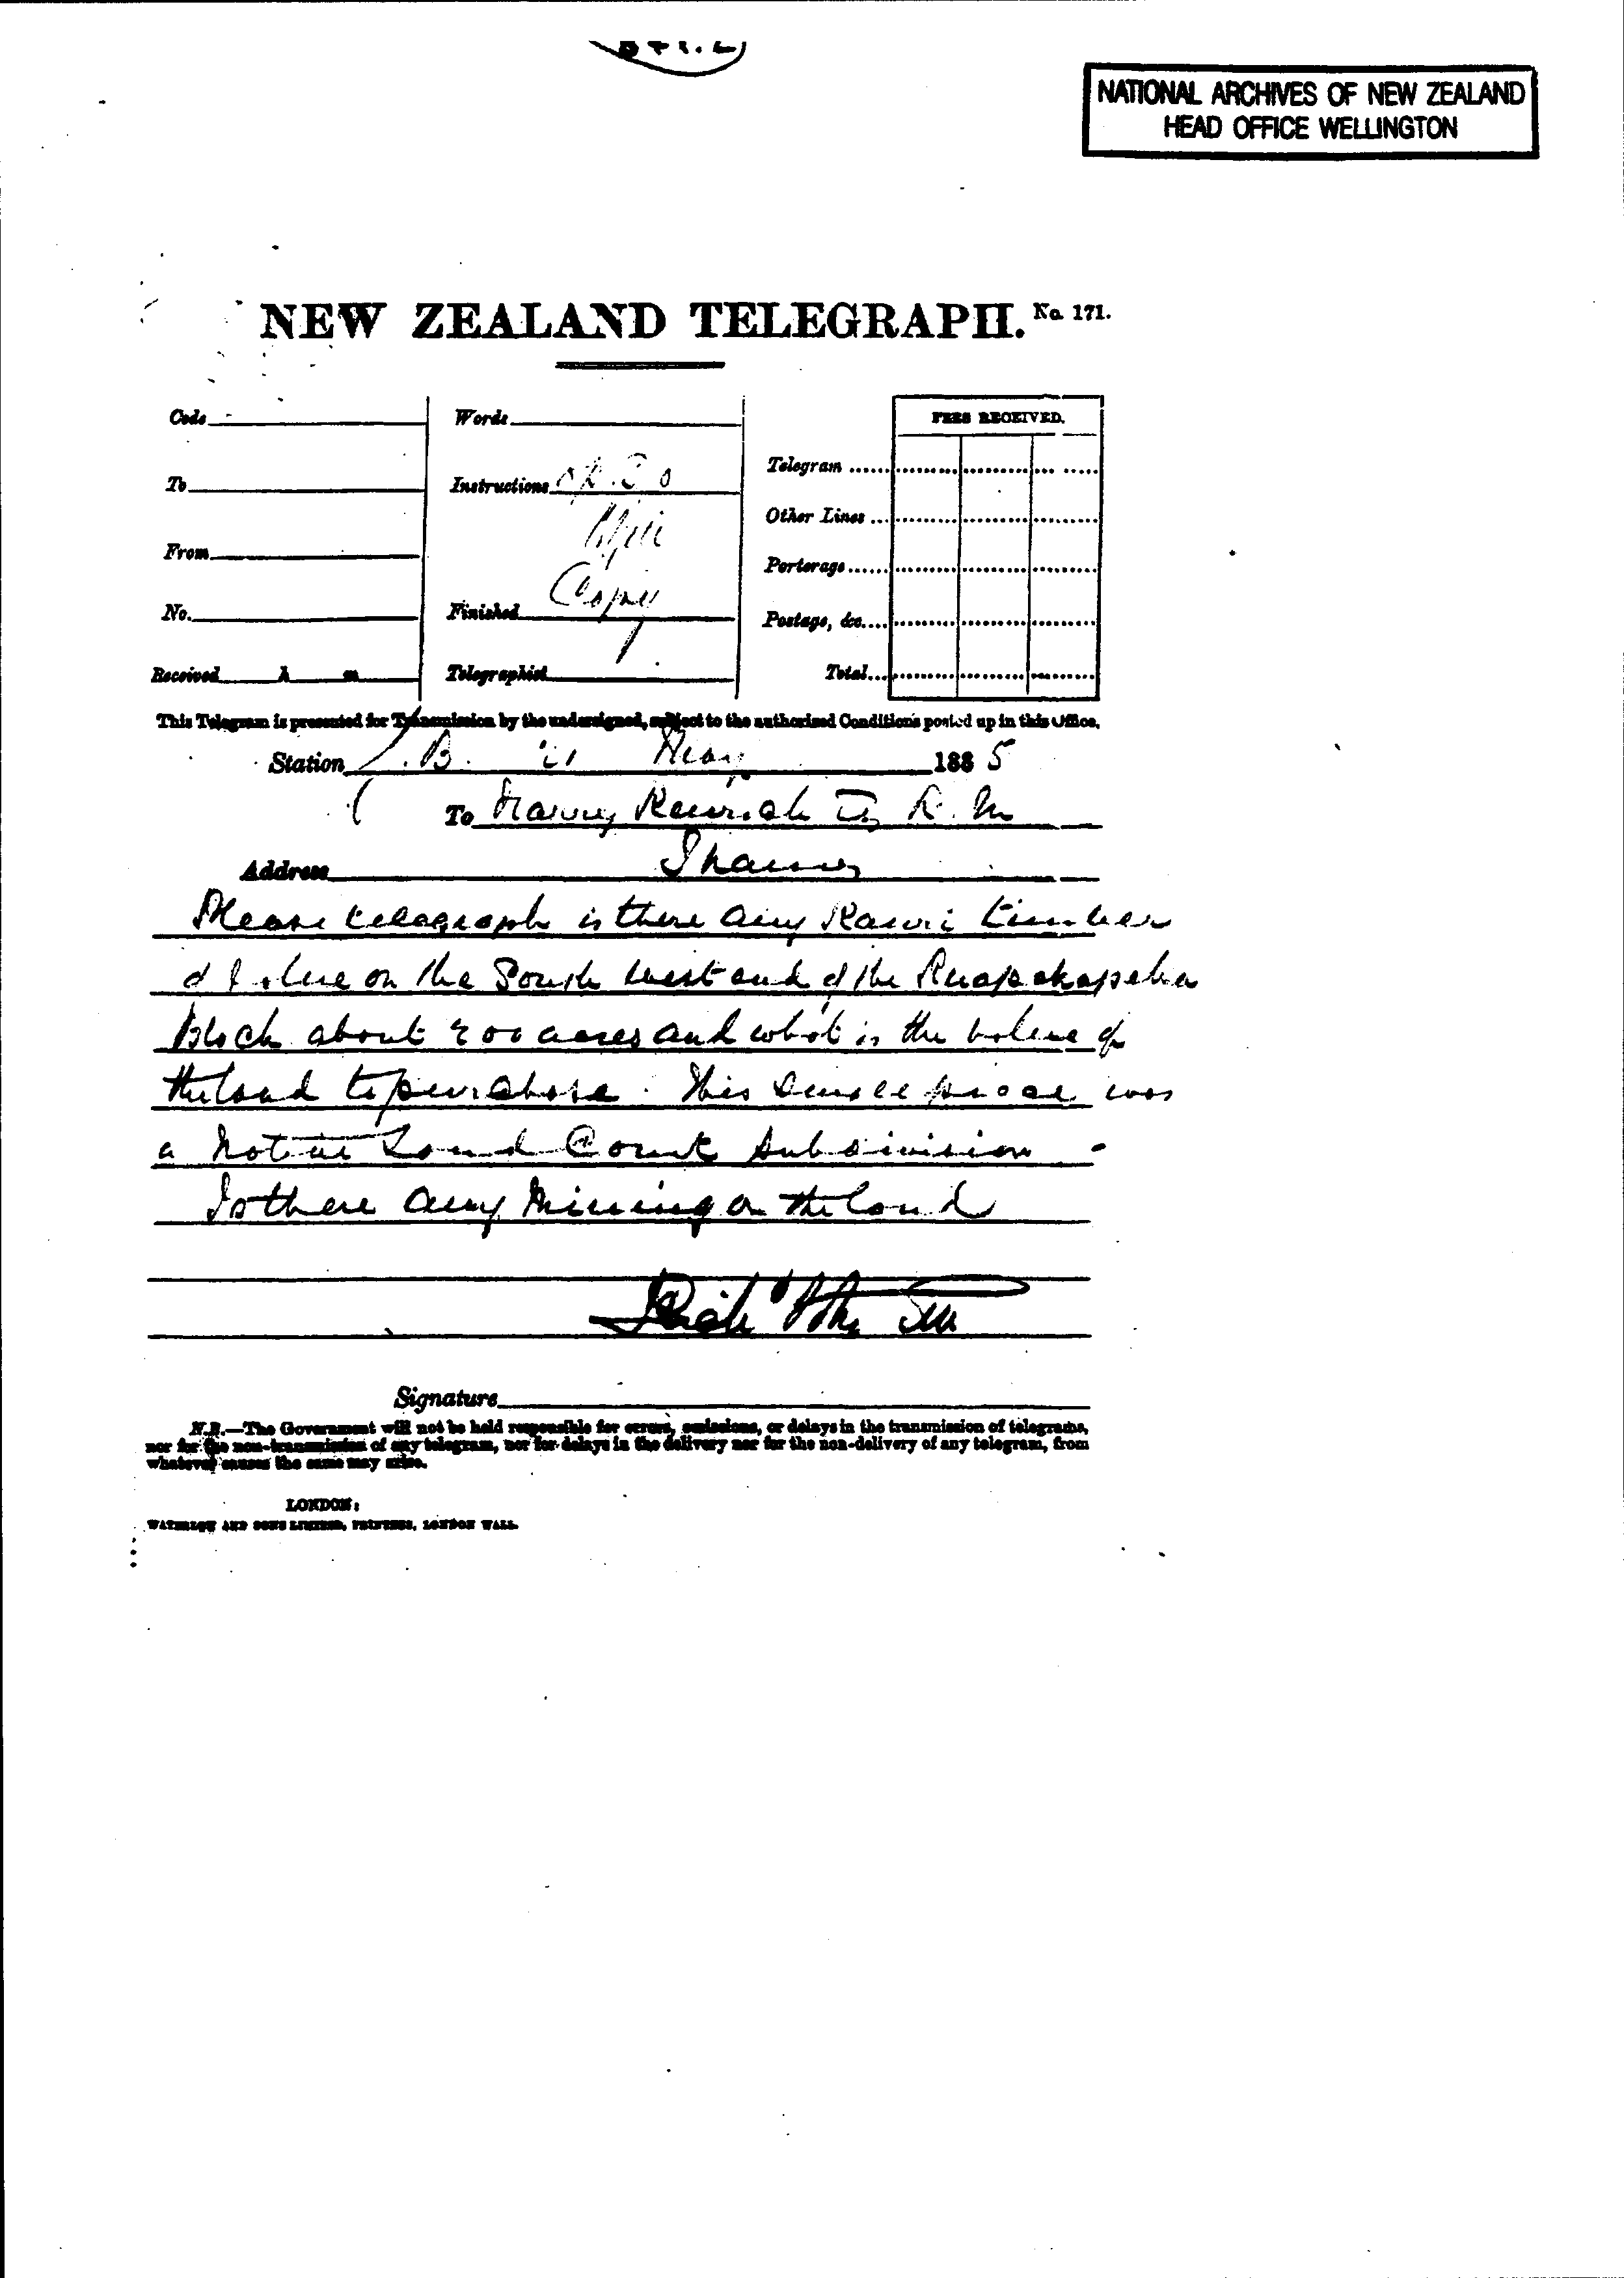 NATIONAL ARCHIVES OF NEW ZEALAND
HEAD OFFICE WELLINGTON
NEW ZEALAND TELEGRAPH. No. 171.
Code
Words
FEES RECEIVED.
To
Instructions
Telegram ......
Other Lines ...
From
Porterage ......
No.
Finished Copy
Postage, &c....
Received h m
Telegraphist
Total...
This Telegram is presented for Transmission by the undersigned, subject to the authorised Conditions posted up in this Office.
Station B. 21 May 1885
To Harry Kenrick R. M
Address Thames
Please telegraph is there any Kauri timber
of value on the South West end of the Ruapekapeka
Block about 200 acres and what is the value of
the land to purchase. This piece was
a Native Land Court subdivision -
Is there any Mining on the land
Signature
N.B.—The Government will not be held responsible for errors, omissions, or delays in the transmission of telegrams,
nor for the non-transmission of any telegram, nor for delays in the delivery nor for the non-delivery of any telegram, from
whatever causes the same may arise.
LONDON:
WATERLOW AND SONS LIMITED, PRINTERS, LONDON WALL.